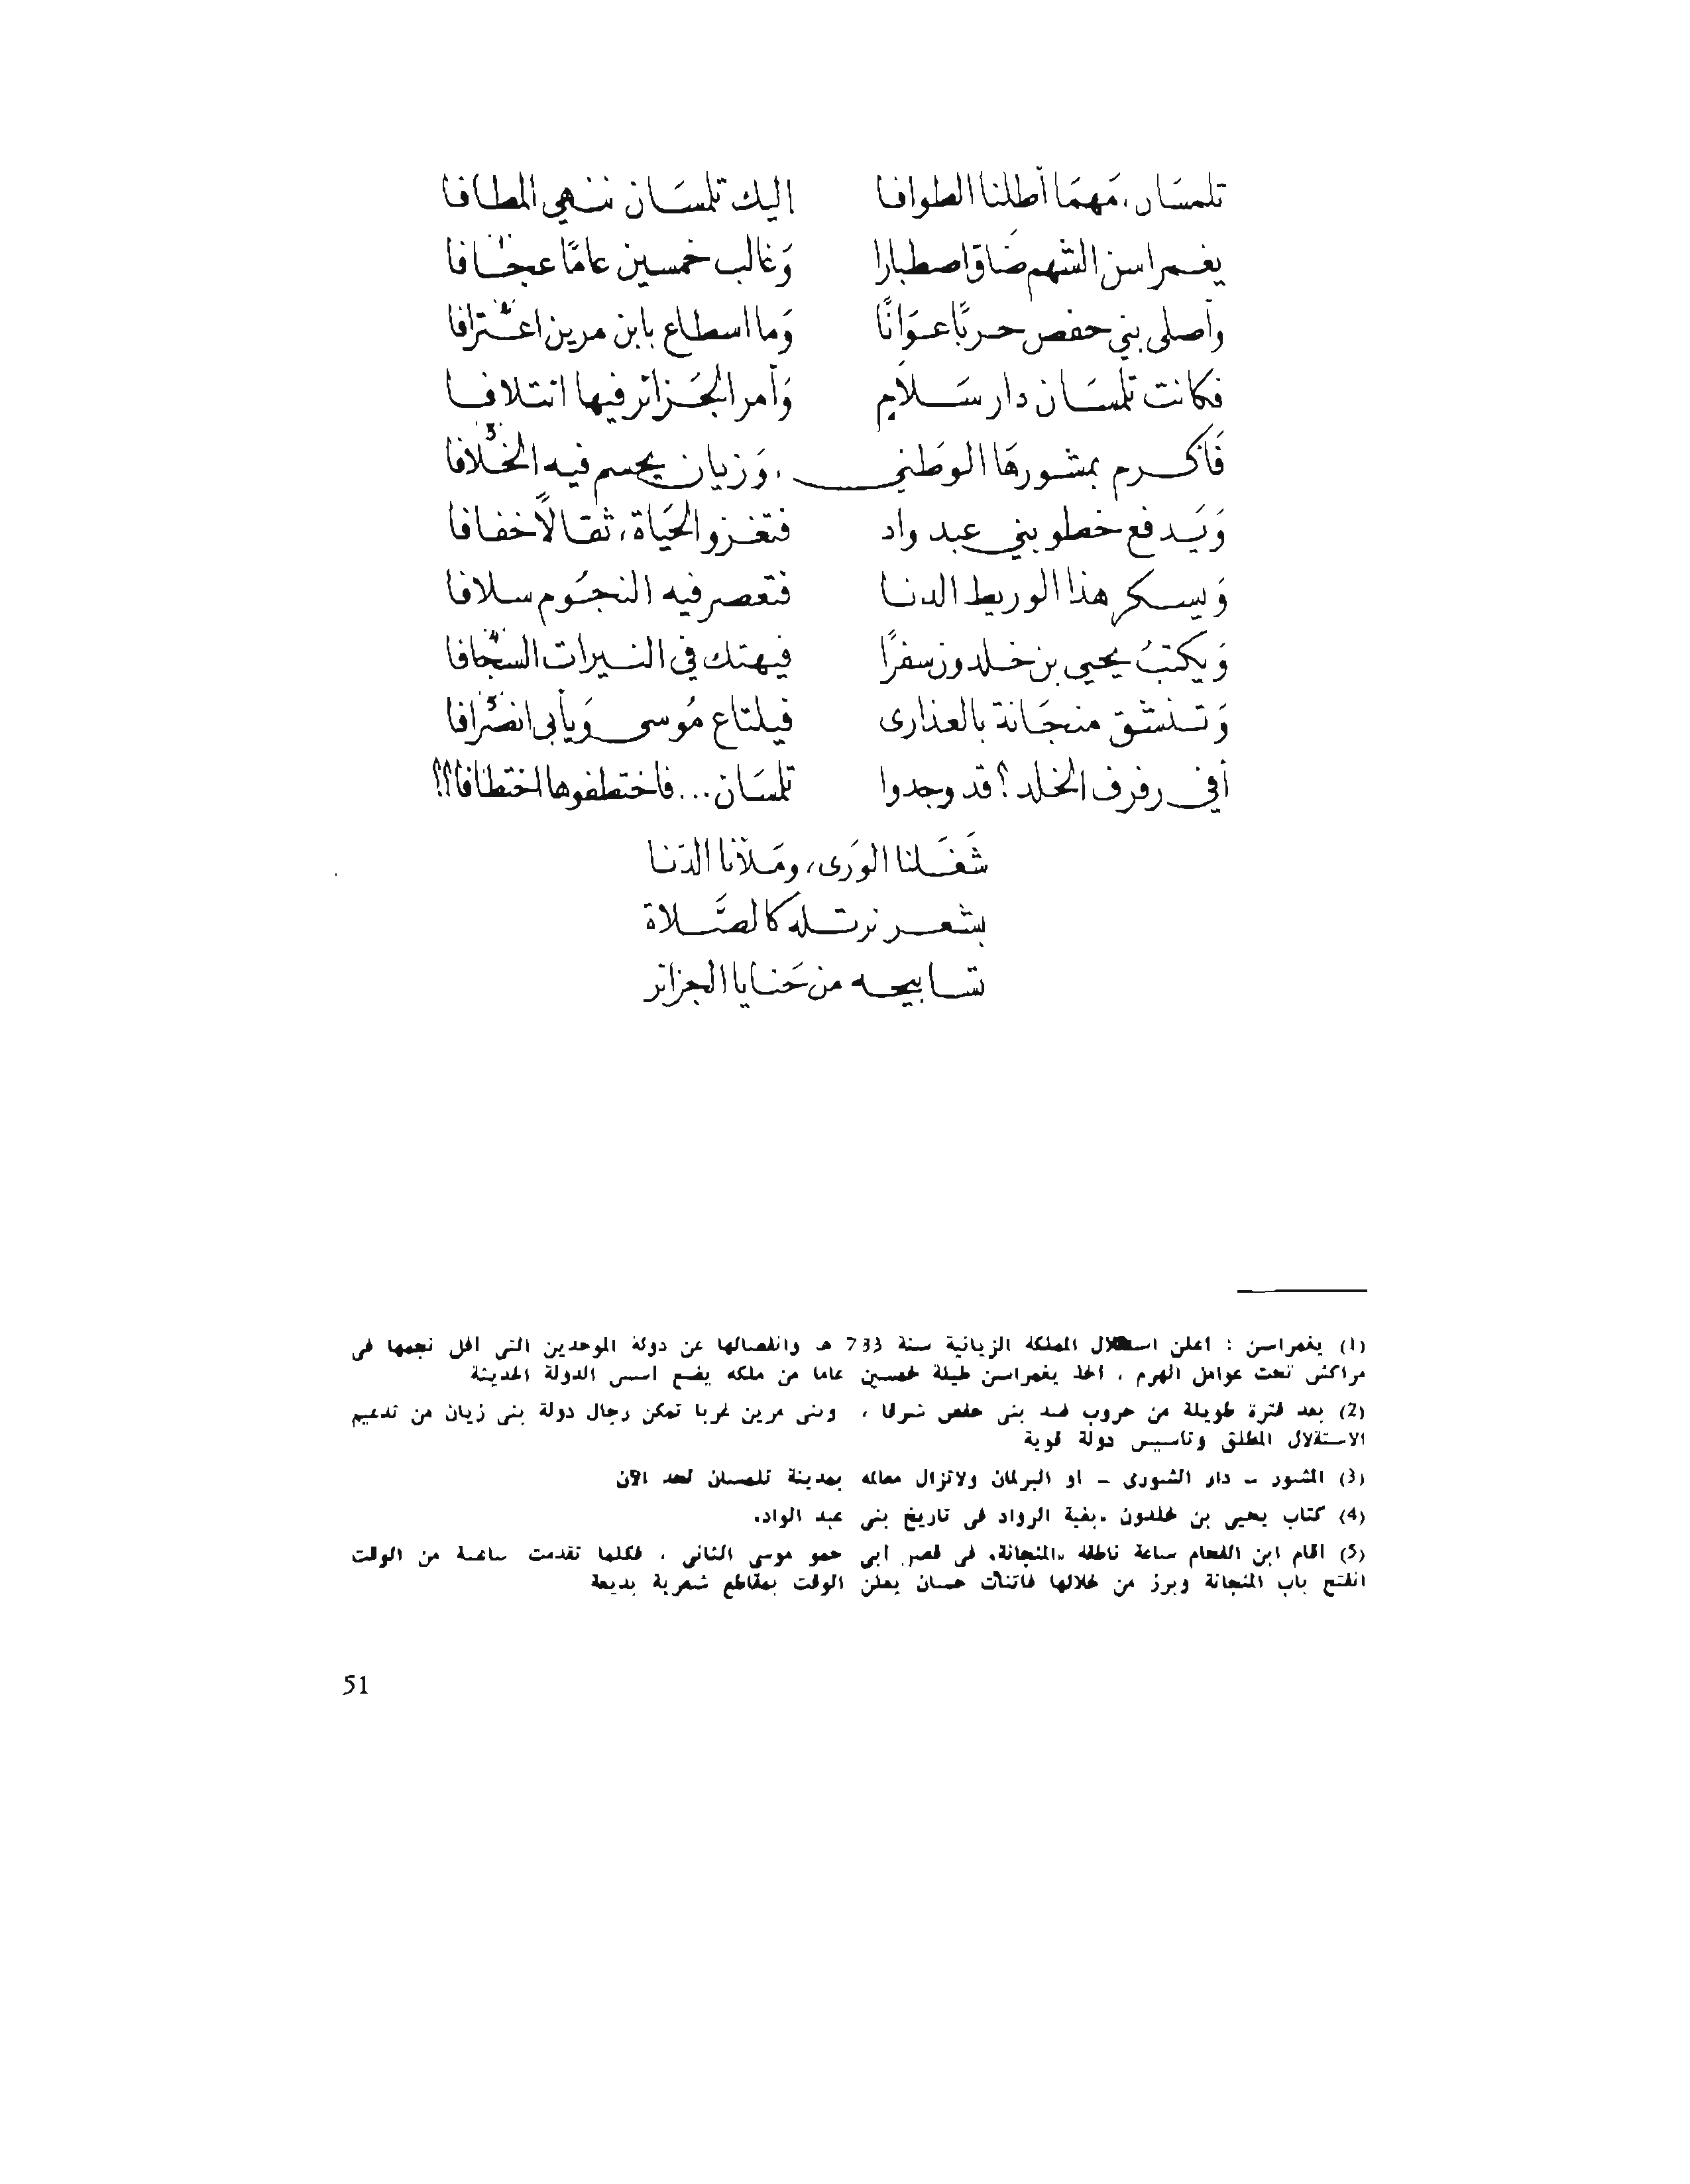 تلمسَان، مَهمَا أطلنا الطوافا اليك تلمسَان ننهي المطافا
يغمراسن الشهم ضَاق اصطبارا وَغالب خمسين عامًا عجافا (1)
وأصلى بني حفص حربًا عوَانًا وَما اسطاع بابن مرين اعترافا (2)
فكانت تلمسَان دار سَلاَمٍ وَأمر الجَزائر فيها ائتلافا
فَأكرم بمشورهَا الوَطني، وَزيان يحسم فيه الخلافا (3)
وَيَدفع خطو بني عبد واد فتغزو الحَياة، ثقالاً خفافا
وَيسكر هذا الوريط الدنا فتعصر فيه النجُوم سلافا
وَيكتبُ يحيى بن خلدون سفرًا فيهتك في النيرات السجافا (4)
وَتنشق منجَانة بالعذارى فيلتاع مُوسى وَيأبى انصرافا (5)
أفي رفرف الخلد؟ قد وجدوا تلمسَان... فاختطفوها اختطافا؟!
شَغَلنا الوَرى، ومَلأنا الدّنا
بشعر نرتله كالصَّلاة
تسابيحه من حَنايا الجزائر
(1) يغمراسن : أعلن استقلال المملكة الزيانية سنة 733 هـ وانفصالها عن دولة الموحدين التى افل نجمها فى
مراكش تحت عوامل الهرم ، أخذ يغمراسن طيلة خمسين عاما من ملكه يضع اسس الدولة الحديثة
(2) بعد فترة طويلة من حروب ضد بنى حفص شرقا ، وبنى مرين غربا تمكن رجال دولة بنى زيان من تدعيم
الاستقلال المطلق وتأسيس دولة قوية
(3) المشور – دار الشورى – او البرلمان ولاتزال معالمه بمدينة تلمسان لحد الآن
(4) كتاب يحيى بن خلدون «بغية الرواد فى تاريخ بنى عبد الواد»
(5) اقام ابن الفحام ساعة ناطقة «المنجانة» فى قصر ابى حمو موسى الثانى ، فكلما تقدمت ساعة من الوقت
انفتح باب المنجانة وبرز من خلالها فاتنات حسان يعلن الوقت بمقاطع شعرية بديعة
51